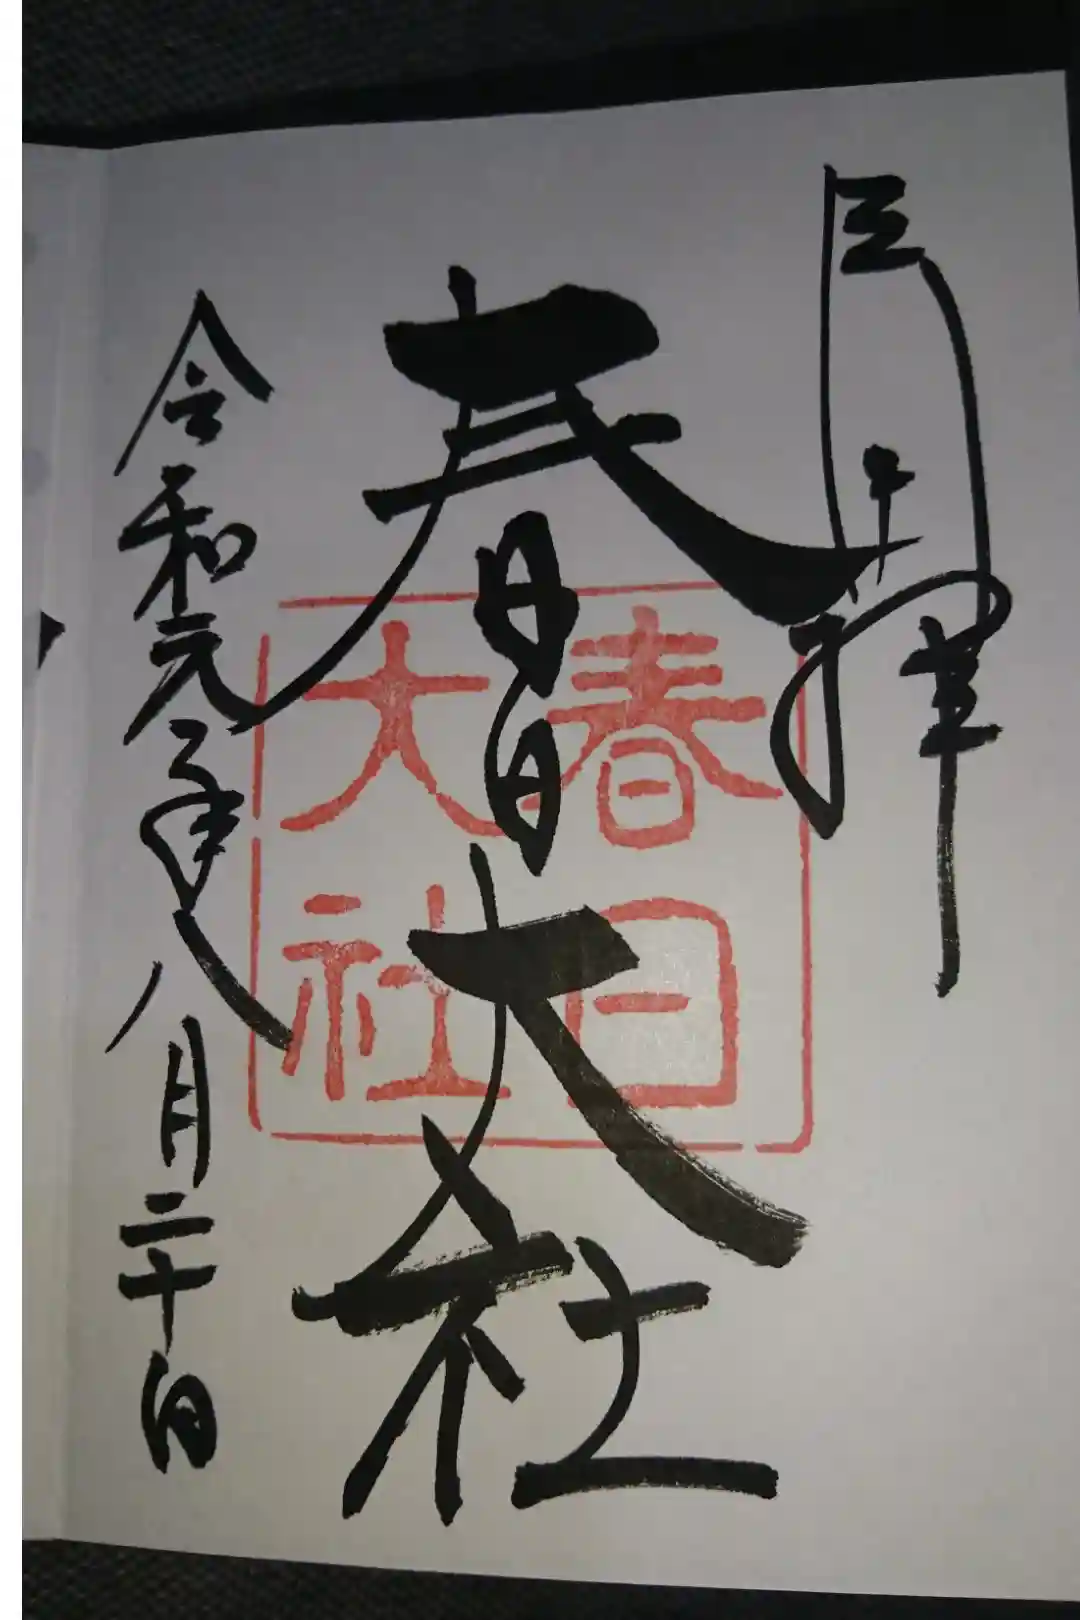 拝
春日大社
春日大社
令和元年八月二十日